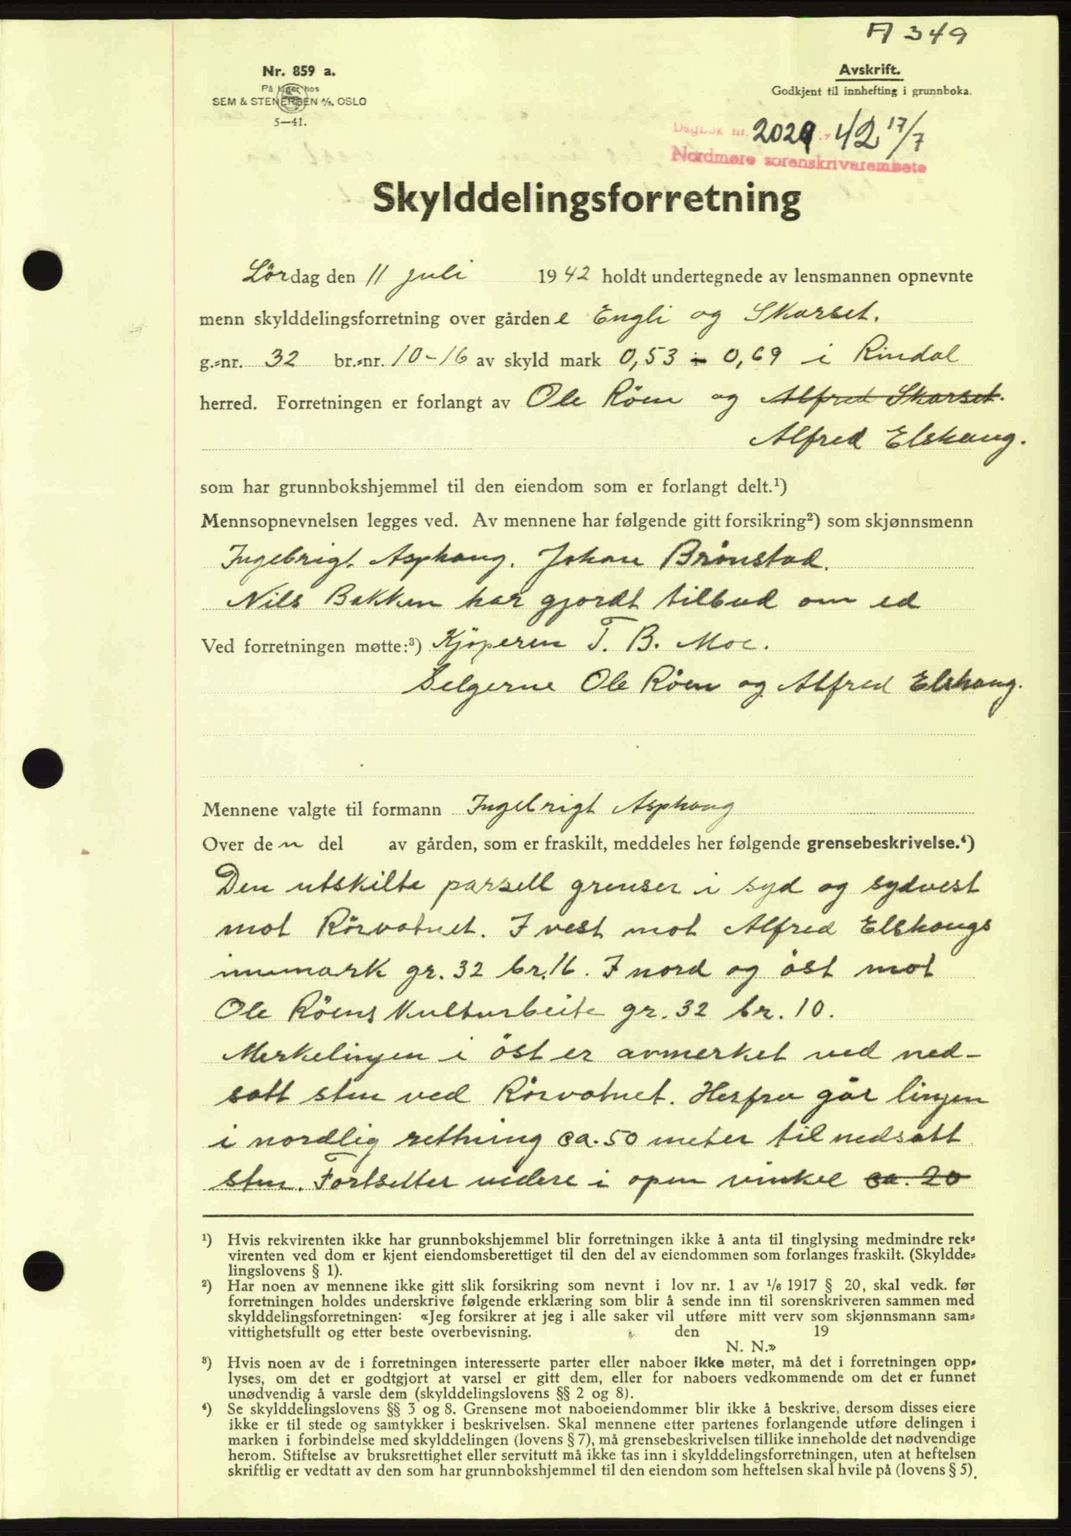 A 349
Nr. 859 a.
På lager hos
SEM & STENERSEN A/S, OSLO
5—41.
Avskrift.
Godkjent til innhefting i grunnboka.
Dagbok nr. 2029 42 17/7
Nordmøre sorenskrivarembete
Skylddelingsforretning
Lördag den 11 juli 1942 holdt undertegnede av lensmannen opnevnte
menn skylddelingsforretning over gårdene Engli og Skarset.
g.-nr. 32 br.-nr. 10-16 av skyld mark 0,53 - 0,69 i Rindal
herred. Forretningen er forlangt av Ole Röen og Alfred Skarset.
Alfred Elshaug.
som har grunnbokshjemmel til den eiendom som er forlangt delt.¹)
Mennsopnevnelsen legges ved. Av mennene har følgende gitt forsikring²) som skjønnsmenn
Ingebrigt Asphaug. Johan Brönstad.
Nils Bakken har gjordt tilbud om ed
Ved forretningen møtte:³) Kjöperen T. B. Moe.
Selgerne Ole Röen og Alfred Elshaug.
Mennene valgte til formann Ingebrigt Asphaug
Over den del av gården, som er fraskilt, meddeles her følgende grensebeskrivelse.⁴)
Den utskilte parsell grenser i syd og sydvest
mot Rörvatnet. I vest mot Alfred Elshaugs
innmark gr. 32 br. 16. I nord og öst mot
Ole Röens Kulturbeite gr. 32 br. 10.
Merkelinjen i öst er avmerket ved ned-
satt sten ved Rörvatnet. Herfra går linjen
i nordlig rettning ca. 50 meter til nedsatt
sten. Fortsetter videre i open vinkel ca. 20
¹) Hvis rekvirenten ikke har grunnbokshjemmel blir forretningen ikke å anta til tinglysing medmindre rek-
virenten ved dom er kjent eiendomsberettiget til den del av eiendommen som forlanges fraskilt. (Skyldde-
lingslovens § 1).
²) Har noen av mennene ikke gitt slik forsikring som nevnt i lov nr. 1 av 1/6 1917 § 20, skal vedk. før
forretningen holdes underskrive følgende erklæring som blir å sende inn til sorenskriveren sammen med
skylddelingsforretningen: «Jeg forsikrer at jeg i alle saker vil utføre mitt verv som skjønnsmann sam-
vittighetsfullt og etter beste overbevisning. den 19
N. N.»
³) Hvis noen av de i forretningen interesserte parter eller naboer ikke møter, må det i forretningen opp-
lyses, om det er godtgjort at varsel er gitt dem, eller for naboers vedkommende om det er funnet
unødvendig å varsle dem (skylddelingslovens §§ 2 og 8).
⁴) Se skylddelingslovens §§ 3 og 8. Grensene mot naboeiendommer blir ikke å beskrive, dersom disses eiere
ikke er til stede og samtykker i beskrivelsen. Skal mennene etter partenes forlangende utføre delingen i
marken i forbindelse med skylddelingen (lovens § 7), må grensebeskrivelsen tillike inneholde det nødvendige
herom. Stiftelse av bruksrettighet eller servitutt må ikke tas inn i skylddelingsforretningen, uten at heftelsen
skriftlig er vedtatt av den som har grunnbokshjemmel til den eiendom som heftelsen skal hvile på (lovens § 5).